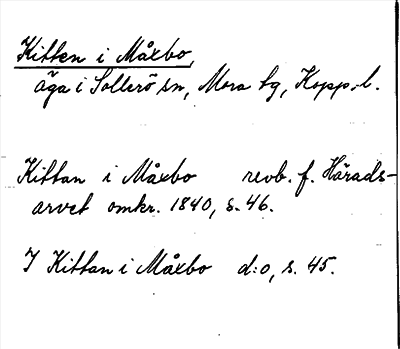 Kitten i Måxbo,
äga i Sollerö sn, Mora tg, Kopp. l.
Kittan i Måxbo revb. f. Härads-
arvet omkr. 1840, s. 46.
I Kittan i Måxbo d:o, s. 45.